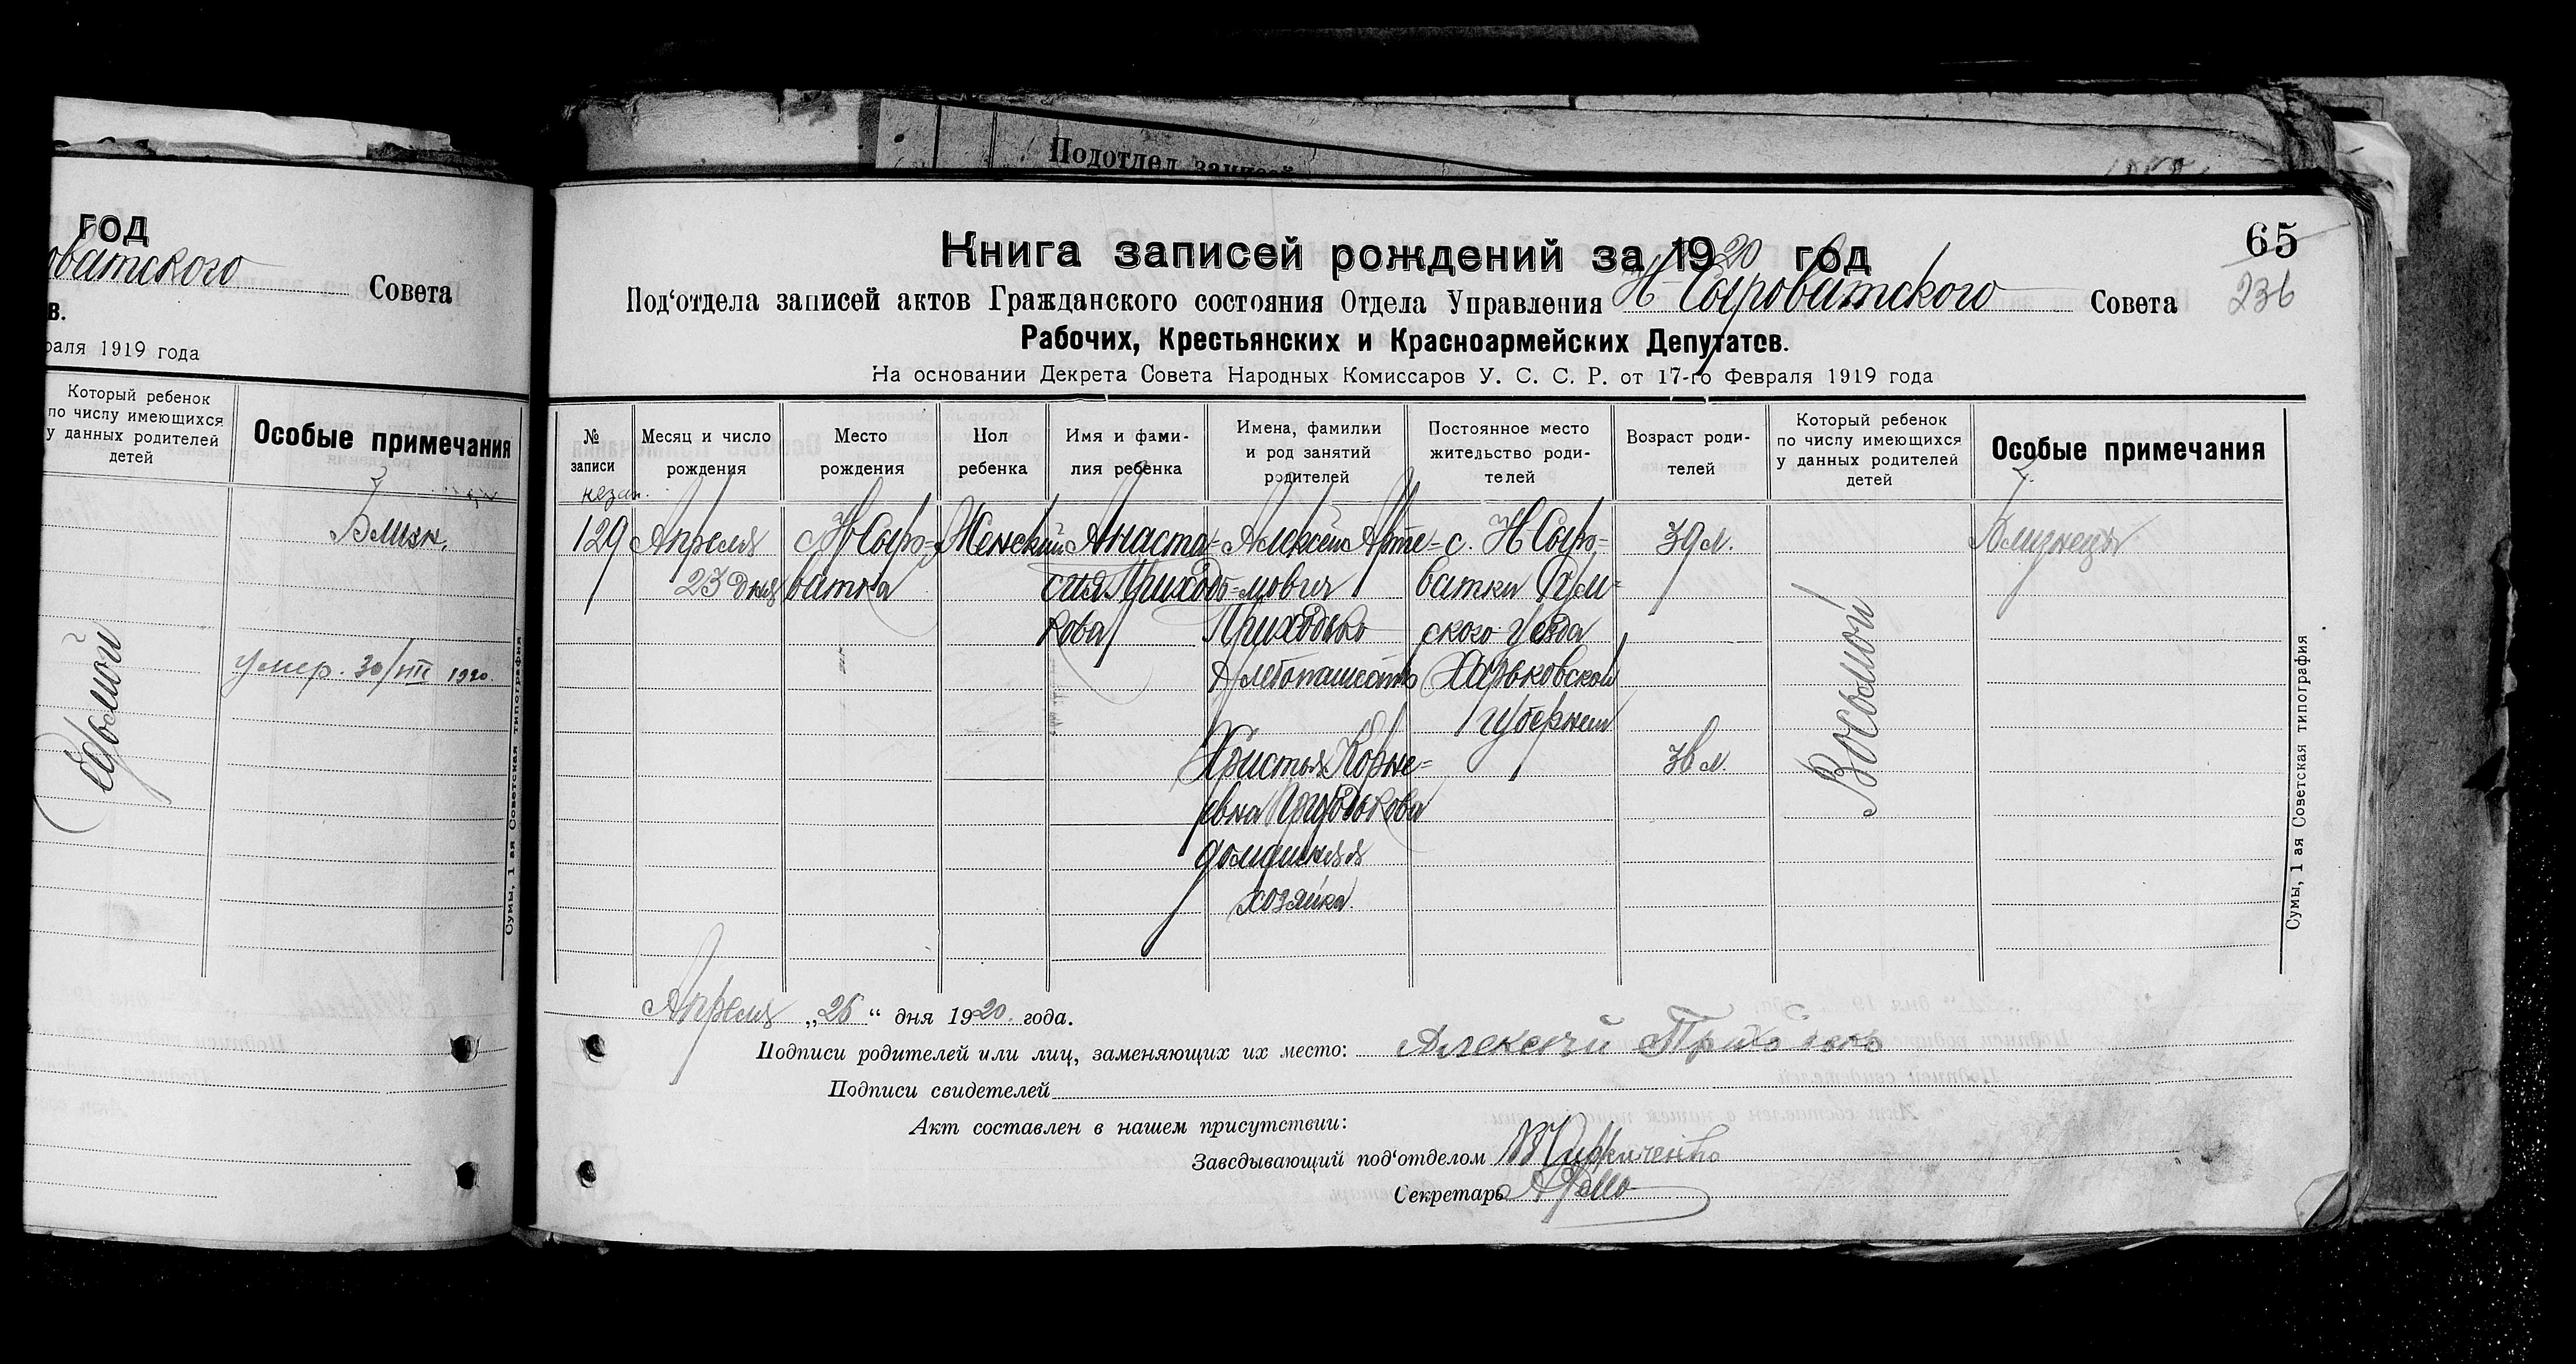 год
оватского Совета
в.
раля 1919 года
Который ребенок
по числу имеющихся
у данных родителей
детей
Особые примечания
Близн.
умер. 30/VIII 1920.
Седьмой
Сумы, 1 ая Советская типография
Подотдел записей
65
236
Книга записей рождений за 1920 год
Под'отдела записей актов Гражданского состояния Отдела Управления Н-Сыроватского Совета
Рабочих, Крестьянских и Красноармейских Депутатов.
На основании Декрета Совета Народных Комиссаров У. С. С. Р. от 17-го Февраля 1919 года
№
записи
Месяц и число
рождения
Место
рождения
Пол
ребенка
Имя и фами-
лия ребенка
Имена, фамилии
и род занятий
родителей
Постоянное место
жительство роди-
телей
Возраст роди-
телей
Который ребенок
по числу имеющихся
у данных родителей
детей
Особые примечания
129
Апреля
23 дня
с Н Сыро=
ватка
Женский
Анаста=
сия Приходь=
кова
Алексей Арте=
мович
Приходько
Хлебопашест
Христья Корне=
евна Приходькова
домашняя
хозяйка
с. Н Сыро=
ватки Сум-
ского уезда
Харьковской
губернии
39 л.
36 л.
Восьмой
Близнецы
Апреля „26“ дня 1920 года.
Подписи родителей или лиц, заменяющих их место: Алексей Приходько
Подписи свидетелей
Акт составлен в нашем присутствии:
Заведывающий под'отделом
Секретарь
Сумы, 1 ая Советская типография